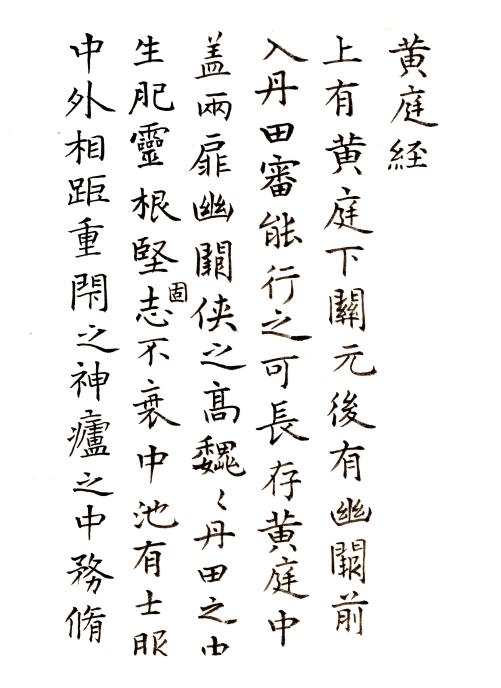 黄庭経
上有黄庭下關元後有幽闕前
入丹田審能行之可長存黄庭中
盖兩扉幽闕侠之髙魏〻丹田之中
生肥靈根堅固志不衰中池有士服
中外相距重閇之神廬之中務脩